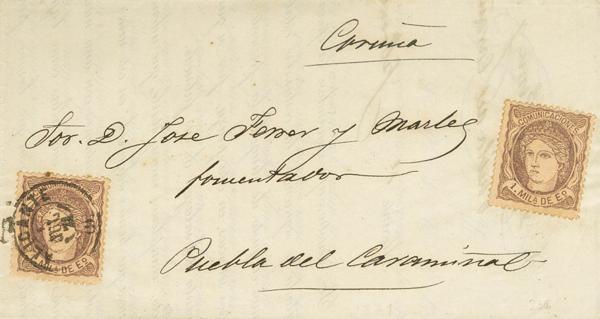 Coruña
Sor. D. Jose Ferrer y Marles
fomentador
Puebla del Caramiñal
COMUNICACIONES
1. MILA DE Eo.
ALICANTE
MILA DE Eo.